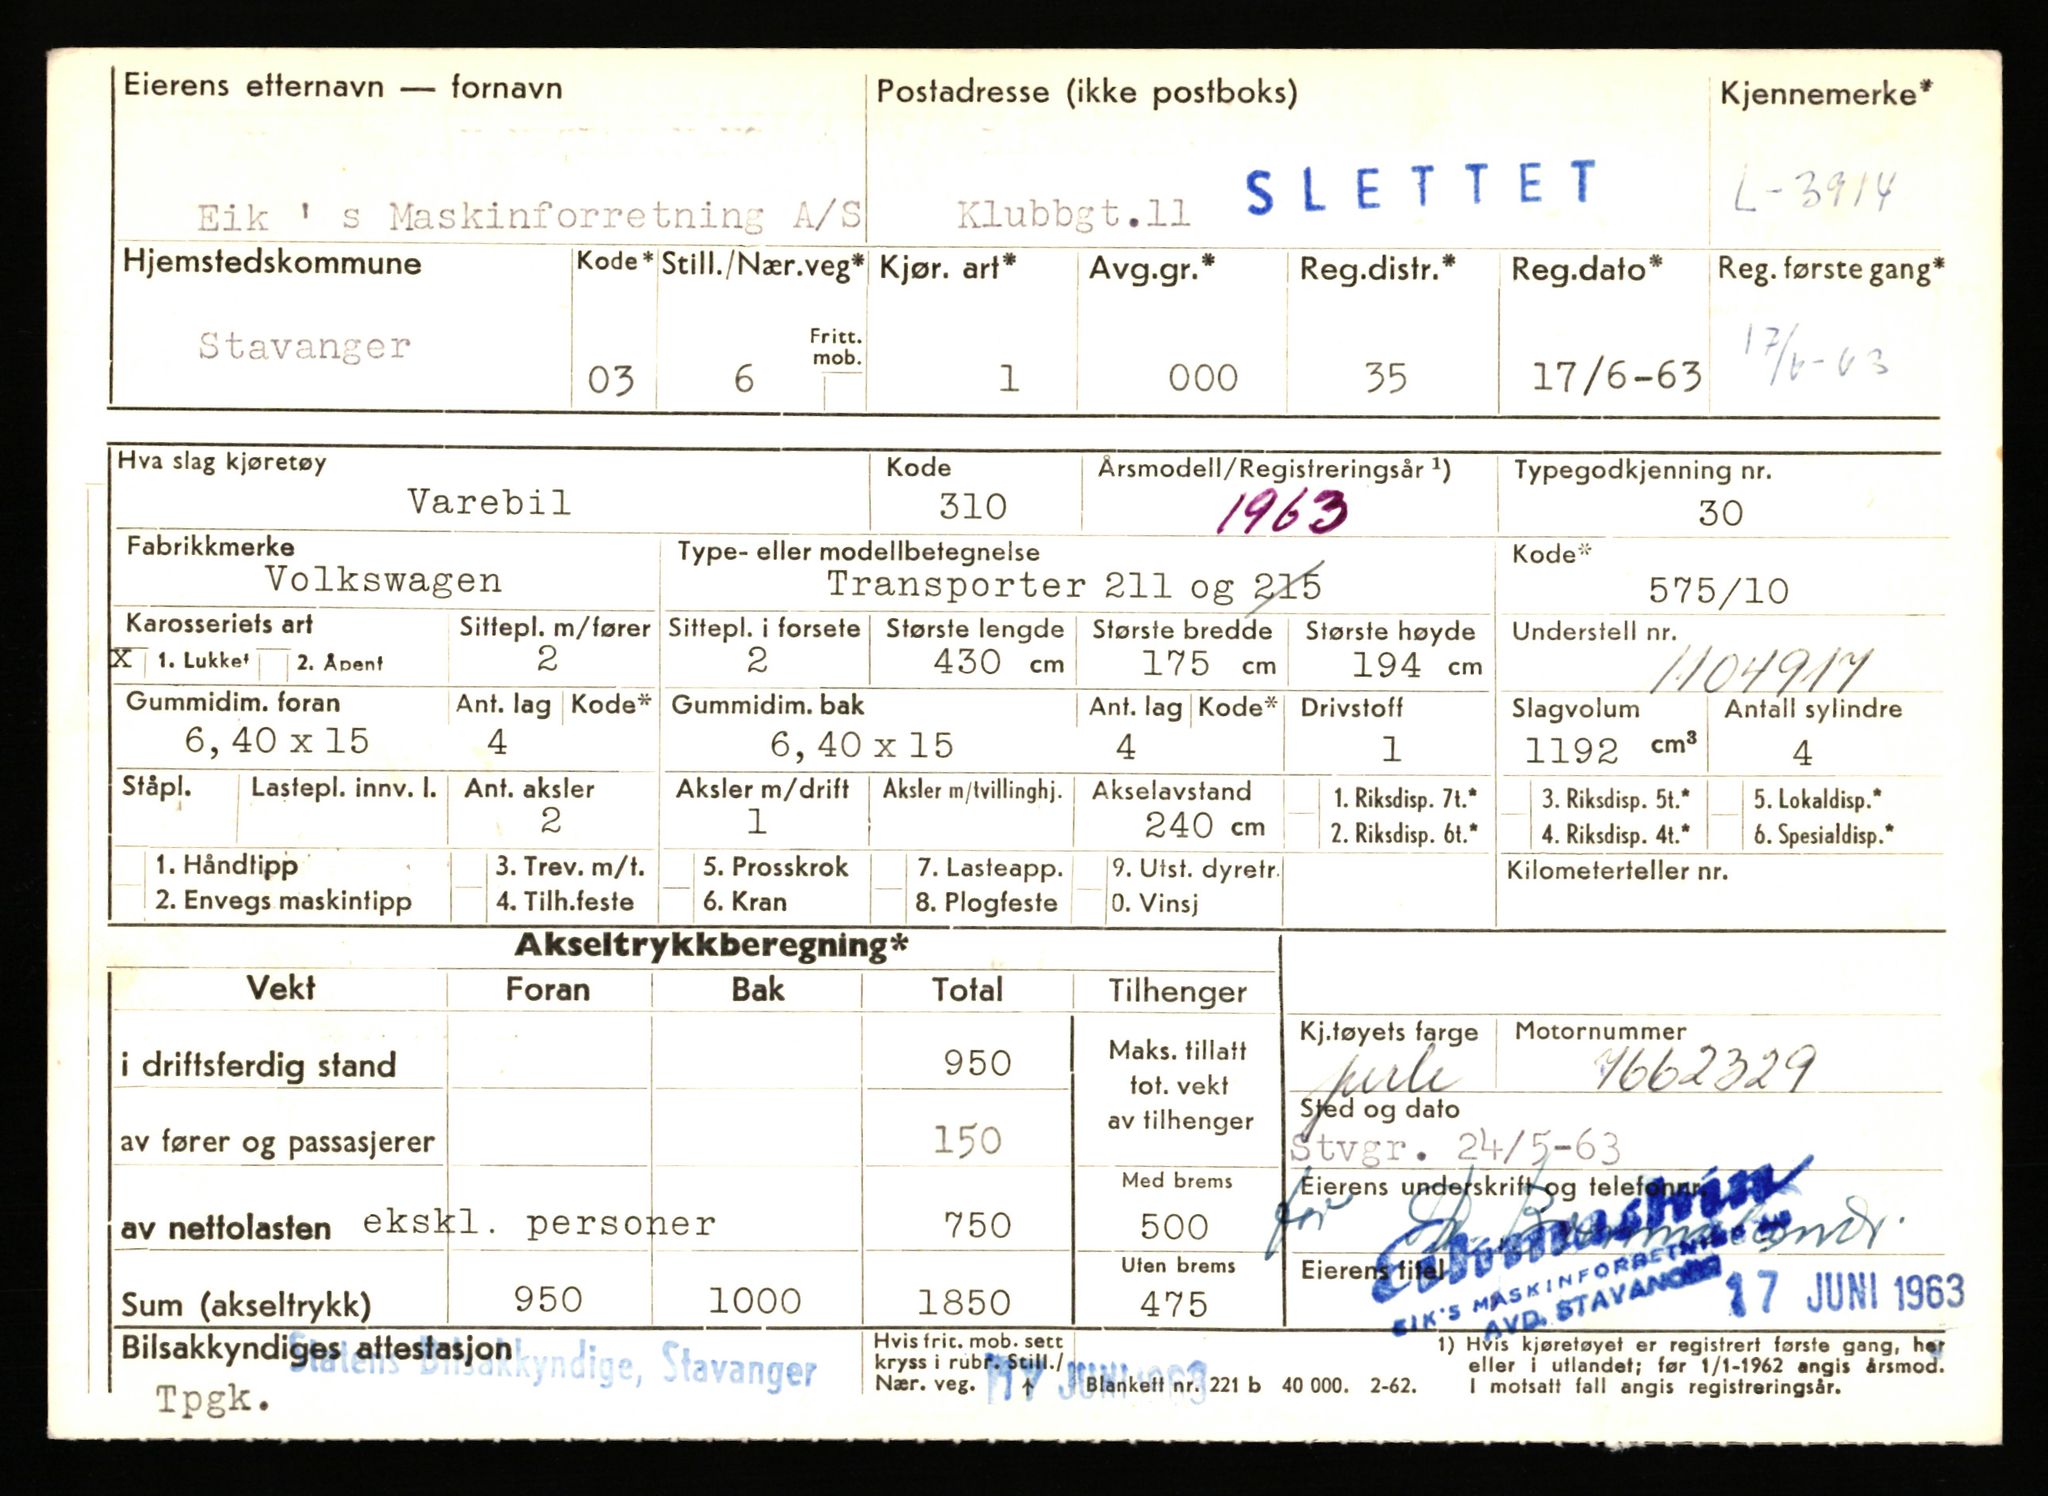 Eierens etternavn — fornavn Postadresse (ikke postboks) Kjennemerke*
Eik ' s Maskinforretning A/S Klubbgt.11 SLETTET L-3914
Hjemstedskommune Kode* Still./Nær.veg* Kjør. art* Avg.gr.* Reg.distr.* Reg.dato* Reg. første gang*
Stavanger 03 6 Fritt. mob. 1 000 35 17/6-63 17/6-63
Hva slag kjøretøy Kode Årsmodell/Registreringsår ¹) Typegodkjenning nr.
Varebil 310 1963 30
Fabrikkmerke Type- eller modellbetegnelse Kode*
Volkswagen Transporter 211 og 215 575/10
Karosseriets art Sittepl. m/fører Sittepl. i forsete Største lengde Største bredde Største høyde Understell nr.
X 1. Lukket 2. Åpent 2 2 430 cm 175 cm 194 cm 1104917
Gummidim. foran Ant. lag Kode* Gummidim. bak Ant. lag Kode* Drivstoff Slagvolum Antall sylindre
6,40 x 15 4 6,40 x 15 4 1 1192 cm³ 4
Ståpl. Lastepl. innv. l. Ant. aksler Aksler m/drift Aksler m/tvillinghj. Akselavstand 1. Riksdisp. 7t.* 3. Riksdisp. 5t.* 5. Lokaldisp.*
2 1 240 cm 2. Riksdisp. 6t.* 4. Riksdisp. 4t.* 6. Spesialdisp.*
1. Håndtipp 3. Trev. m/t. 5. Prosskrok 7. Lasteapp. 9. Utst. dyretr. Kilometerteller nr.
2. Envegs maskintipp 4. Tilh.feste 6. Kran 8. Plogfeste 0. Vinsj
Akseltrykkberegning*
Vekt Foran Bak Total Tilhenger
Kj.tøyets farge Motornummer
i driftsferdig stand 950 Maks. tillatt tot. vekt av tilhenger perle 7662329
Sted og dato
av fører og passasjerer 150 Stvgr. 24/5-63
Med brems Eierens underskrift og telefonnr.
av nettolasten ekskl. personer 750 500 for
Uten brems Eierens titel
Eikmaskin
EIK'S MASKINFORRETNING A/S
AVD. STAVANGER
Sum (akseltrykk) 950 1000 1850 475 17 JUNI 1963
Bilsakkyndiges attestasjon Statens Bilsakkyndige, Stavanger
Tpgk.
Hvis frit. mob. sett
kryss i rubr. Still./
Nær. veg. ↑ 17 JUNI 1963 Blankett nr. 221 b 40 000. 2-62.
1) Hvis kjøretøyet er registrert første gang, her
eller i utlandet; før 1/1-1962 angis årsmod.
I motsatt fall angis registreringsår.